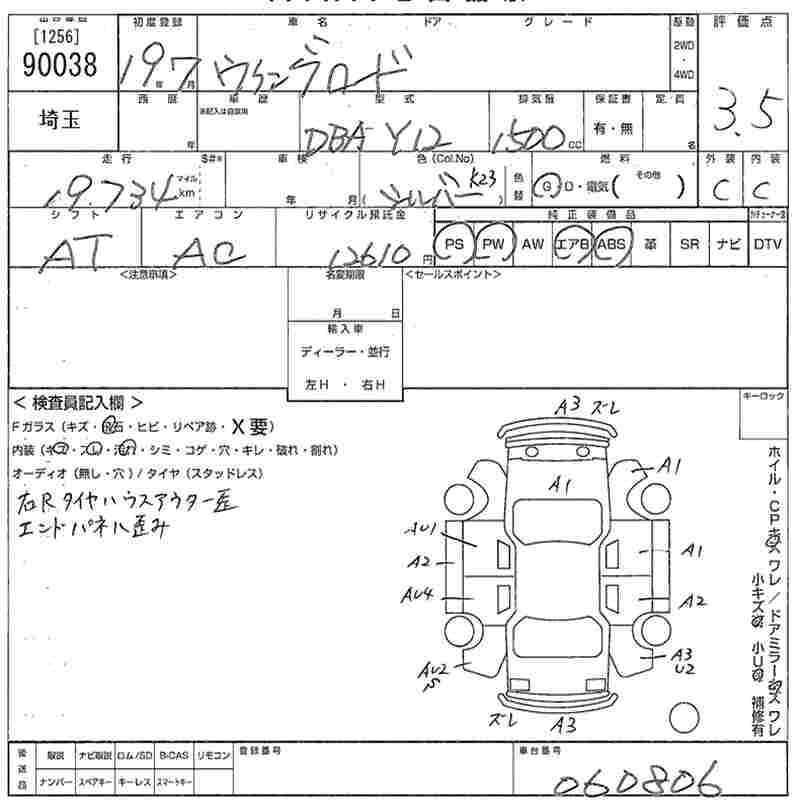 出品番号 初度登録 車名 ドア グレード 駆動 評価点
[1256]
90038
19年7月 ウイングロード 2WD・4WD 3.5
埼玉
西暦 年 車歴 未記入は自家用 型式 DBA Y12 排気量 1500cc 保証書 有・無 定員 名
走行 19.734 マイル km S#* 車検 年 月 色(Col.No) (シルバー K23) 色替 燃料 G・D・電気( その他 ) 外装 C 内装 C
シフト AT エアコン AC リサイクル預託金 12610円
純正装備品
PS PW AW エアB ABS 革 SR ナビ DTV
<注意事項> 名変期限 <セールスポイント>
月 日
輸入車
ディーラー・並行
左H ・ 右H
< 検査員記入欄 >
Fガラス (キズ・飛石・ヒビ・リペア跡・X要)
内装 (キズ・スレ・汚れ・シミ・コゲ・穴・キレ・破れ・割れ)
オーディオ (無し・穴) / タイヤ (スタッドレス)
右Rタイヤハウスアウター歪
エンドパネル歪み
キーロック
A3 ズレ
A1
A1
AU1
A1
A2
AU4
A2
AU2
S
A3
U2
ズレ A3
ホイル・CPキズ ワレ / ドアミラーキズ ワレ
小キズ多 小U多 補修有
後送品 取説 ナビ取説 ロム/SD B-CAS リモコン
ナンバー スペアキー キーレス スマートキー
登録番号
車台番号
060806